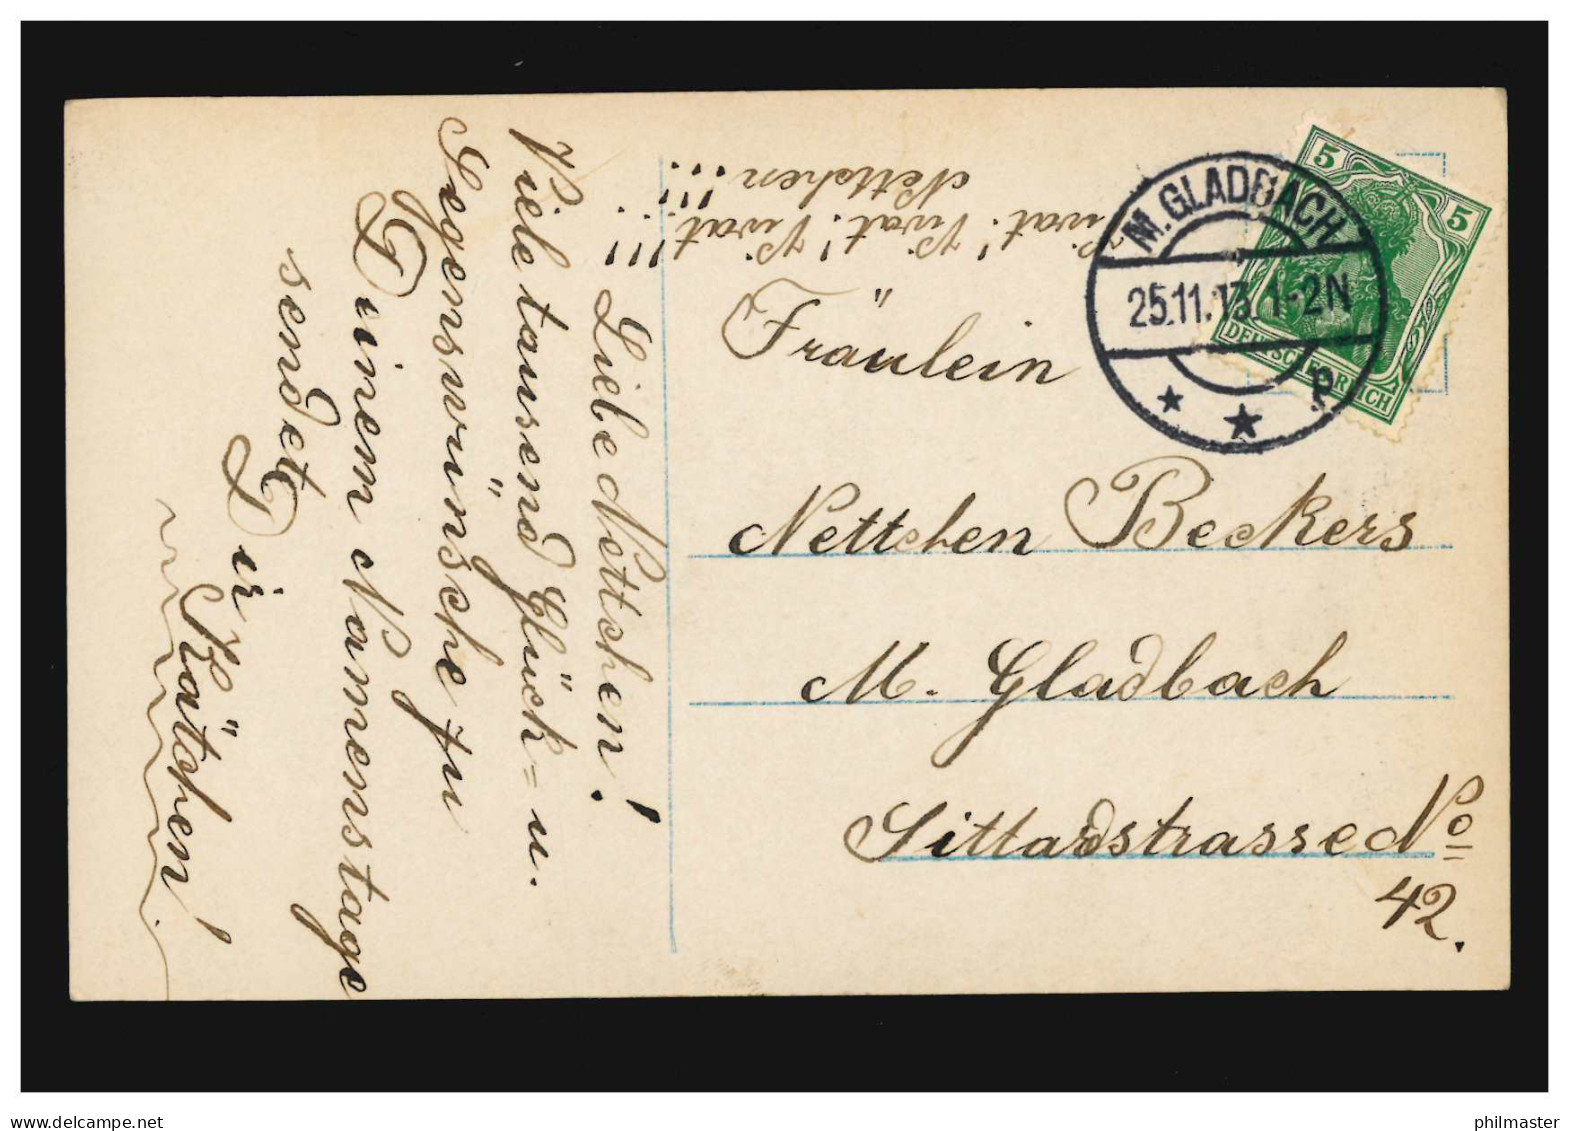 Liebe Nettchen!
Viele tausend Glück= u.
Segenswünsche zu
Deinem Namenstage
sendet
Dir
Kätchen!
Vivat! Vivat! Vivat!!!
Nettchen!!!
Fräulein
Nettchen Beckers
M. Gladbach
Sittardstrasse No
42.
M. GLADBACH
25.11.13. 1-2N
* * P
5 5
DEUTSCHES REICH
www.delcampe.net
philmaster